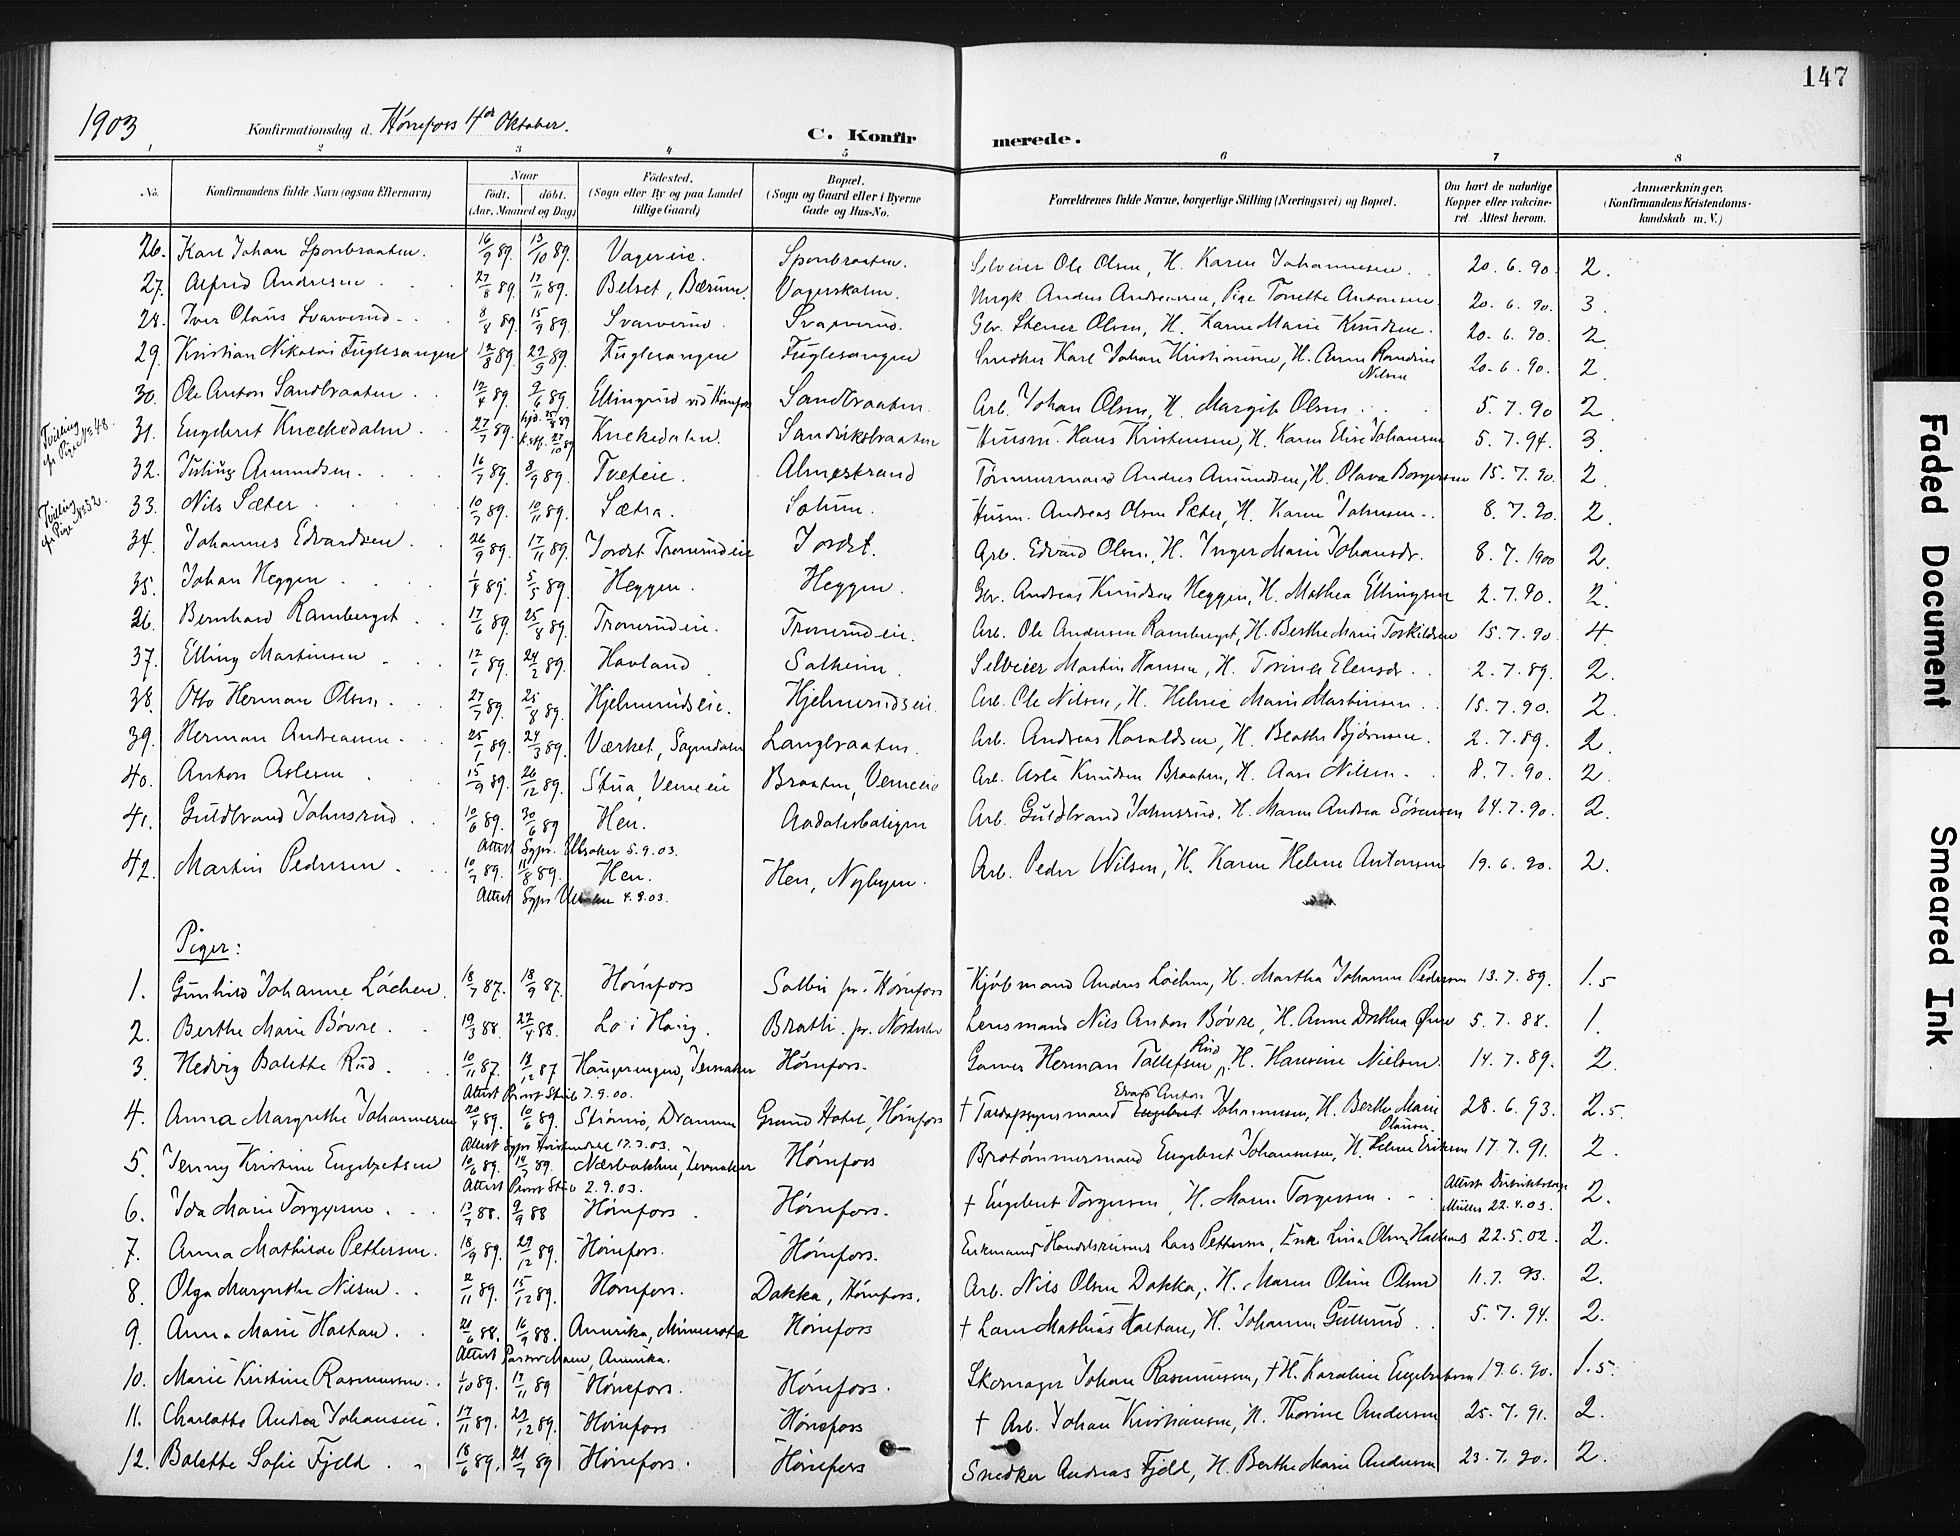 147
1903 Konfirmationsdag d. Hønefoss 4de Oktober. C. Konfirmerede.
1 2 3 4 5 6 7 8
No. Konfirmandens fulde Navn (ogsaa Efternavn) Naar født. døbt. (Aar, Maaned og Dag) Födested. (Sogn eller By og paa Landet tillige Gaard) Bopæl. (Sogn og Gaard eller i Byerne Gade og Hus-No. Forældrenes fulde Navne, borgerlige Stilling (Næringsvei) og Bopæl. Om havt de naturlige Kopper eller vakcineret. Attest herom. Anmærkninger. (Konfirmandens Kristendomskundskab m. V.)
26. Karl Johan Sponbraaten. 16/9 89. 13/10 89. Vagereie. Sponbraaten. Selveier Ole Olsen, H. Karen Johannesen. 20. 6. 90. 2.
27. Alfred Andresen 27/8 89. 17/11 89. Belset, Bærum. Vagerskalen. Ungk. Anders Andreassen, Pige Tonette Antonsen 20. 6. 90. 3.
28. Iver Olaus Svarverud 8/8 89. 15/9 89. Svarverud. Svarverud. Gbr. Stener Olsen, H. Karen Marie Knudsen. 20. 6. 90. 2.
29. Kristian Nikolai Fuglesangen 12/8 89. 29/9 89. Fuglesangen Fuglesangen Snedker Karl Johan Kristiansen, H. Anne Randine Nilsen 20. 6. 90. 2.
30. Ole Anton Sandbraaten 12/4 89. 9/6 89. Ellingrud ved Hønefos Sandbraaten. Arb. Johan Olsen, H. Margit Olsen 5. 7. 90 2.
Tvilling fr Pige No. 48.
31. Engebret Knechedalen 27/7 89. hjd. 25/8 89 Knekedalen. Sandviksbraaten Husm. Hans Kristensen, H. Karen Elise Johansen 5. 7. 94. 3.
32. Julius Amundsen 16/7 89. 8/9 89. Tveteie. Almestrand Tømmermand Anders Amundsen, H. Olava Borgersen 15. 7. 90. 2.
Tvilling fr Pige No 52.
33. Nils Sæter 10/7 89. 10/11 89. Sætra. Solum. Husm. Andreas Olsen Sæter, H. Karen Johnsen 8. 7. 90. 2.
34. Johannes Edvardsen 26/9 89. 17/11 89. Jordet Tronerudeie Jordet. Arb. Edvard Olsen, H. Inger Marie Johansdr. 8. 7. 1900 2.
35. Johan Heggen 1/4 89. 5/5 89. Heggen. Heggen. Gbr. Andreas Knudsen Heggen, H. Mathea Ellingsen 2. 7. 90. 2.
36. Bernhard Ramberget 17/6 89. 25/8 89. Tronerudeie. Tronerudeie. Arb. Ole Andersen Ramberget, H. Berthe Marie Torkildsen 15. 7. 90. 4
37. Elling Martinsen 12/1 89. 24/2 89. Havland Solheim. Selveier Martin Hansen, H. Torine Elensdr. 2. 7. 89. 2.
38. Otto Herman Olsen. 27/7 89. 25/8 89. Hjelmerudseie. Hjelmerudseie. Arb. Ole Nilsen, H. Helene Marie Martinsen 15. 7. 90. 2.
39. Herman Andreassen 25/1 89. 24/3 89. Værket, Sogndalen Langbraaten. Arb. Andreas Haraldsen, H. Beathe Bjørnsen. 2. 7. 89. 2.
40. Anton Aslesen 15/9 89. 26/12 89. Stua, Vemeeie Braaten, Vemeeie Arb. Asle Knudsen Braaten, H. Aase Nilsen. 8. 7. 90. 2.
41. Guldbrand Johnsrud 10/6 89. 30/6 89 Hen. Aadalsbakigen Arb. Guldbrand Johnsrud. H. Maren Andrea Sørensen 14. 7. 90. 2.
Attest Sgpr. Ullsaker 5. 9. 03.
42. Martin Pedersen 10/7 89. 11/8 89. Hen. Hen, Nybyen. Arb. Peder Nilsen, H. Karen Helene Antonsen 19. 6. 90. 2.
Attest Sgpr 4. 9. 03.
Piger:
1. Gunhild Johanne Løchen. 18/7 87. 18/9 87. Hønefoss Solbu pr. Hønefoss Kjøbmand Anders Løchen, H. Martha Johanne Pedersen 13. 7. 89. 1.5
2. Berthe Marie Bøvre. 19/3 88. 22/4 88. Lo i Haug. Bratli pr. Norderhov Lensmand Nils Anton Bøvre, H. Anne Dorthea Øune 5. 7. 88. 1.
3. Hedvig Bolette Rud. 10/11 87. 18/12 87 Haugerengen, Jevnaker Hønefoss. Garver Herman Tollefsen Rud, H. Hansine Nielsen 14. 7. 89. 2.
Attest Provst Stub 7. 9. 00.
4. Anna Margrethe Johannesen 20/4 89. 10/6 89. Strømsø, Drammen Grand Hotel, Hønefoss † Edvard Anton Johannesen, H. Berthe Marie Olausen. 28. 6. 93. 2.5.
Attest Sgpr 17. 3. 03.
5. Jenny Kristine Engebretsen 10/6 89. 14/7 89. Næsbakken, Jevnaker Hønefoss Brotømmermand Engebret Johannesen, H. Helene Eriksen 17. 7. 91. 2.
Attest Provst Stub 2. 9. 03.
6. Ida Marie Torgersen 13/7 88. 9/9 88 Hønefoss. Hønefoss. † Engebret Torgersen, H. Maren Torgersen. Attest Distriktslæge Müller 22. 4. 03. 2.
7. Anna Mathilde Pettersen. 18/9 89. 29/12 89. Hønefoss. Hønefoss. Enkemand Handelsreisende Lars Pettersen, Enke Lina Olsen 22. 5. 02. 2.
8. Olga Margrethe Nilsen 2/11 89. 15/12 89. Hønefoss. Dokka, Hønefoss. Arb. Nils Olsen Dokka, H. Maren Oline Olsen 11. 7. 93. 2.
9. Anna Marie Haltan. 21/6 88. 16/9 88. Amerika, Minnesota Hønefoss † Mathias Haltan, H. Johanne Gullerud 5. 7. 94. 2.
Attest Pastor, Amerika.
10. Marie Kristine Rasmussen. 1/10 89. 17/11 89 Hønefoss. Hønefoss. Skomager Johan Rasmussen, † H. Karoline Engebretsen 19. 6. 90. 1.5.
11. Charlotte Andrea Johansen. 17/11 89. 29/12 89. Hønefoss Hønefoss † Arb. Johan Kristiansen, H. Thorine Andersen 25. 7. 91. 2.
12. Bolette Sofie Fjeld. 18/6 89. 21/7 89 Hønefoss. Hønefoss Snedker Andreas Fjeld, H. Berthe Marie Andersen 23. 7. 90. 2.
Faded Document
Smeared Ink